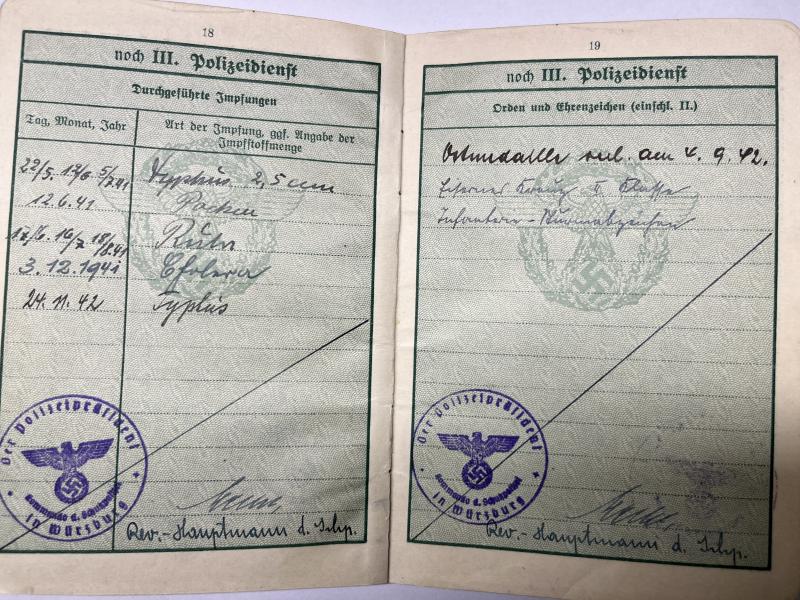 18
noch III. Polizeidienst
Durchgeführte Impfungen
Tag, Monat, Jahr
Art der Impfung, ggf. Angabe der
Impfstoffmenge
Typhus 2,5 ccm
12.6.41 Pocken
Ruhr
3.12.1941 Cholera
24.11.42 Typhus
Der Polizeipräsident
Kommando d. Schutzpolizei
in Würzburg
Rev.-Hauptmann d. Schp.
19
noch III. Polizeidienst
Orden und Ehrenzeichen (einschl. II.)
Ostmedaille verl. am 4. 9. 42.
Eisernes Kreuz II Klasse
Infanterie-Sturmabzeichen
Der Polizeipräsident
Kommando d. Schutzpolizei
in Würzburg
Rev.-Hauptmann d. Schp.